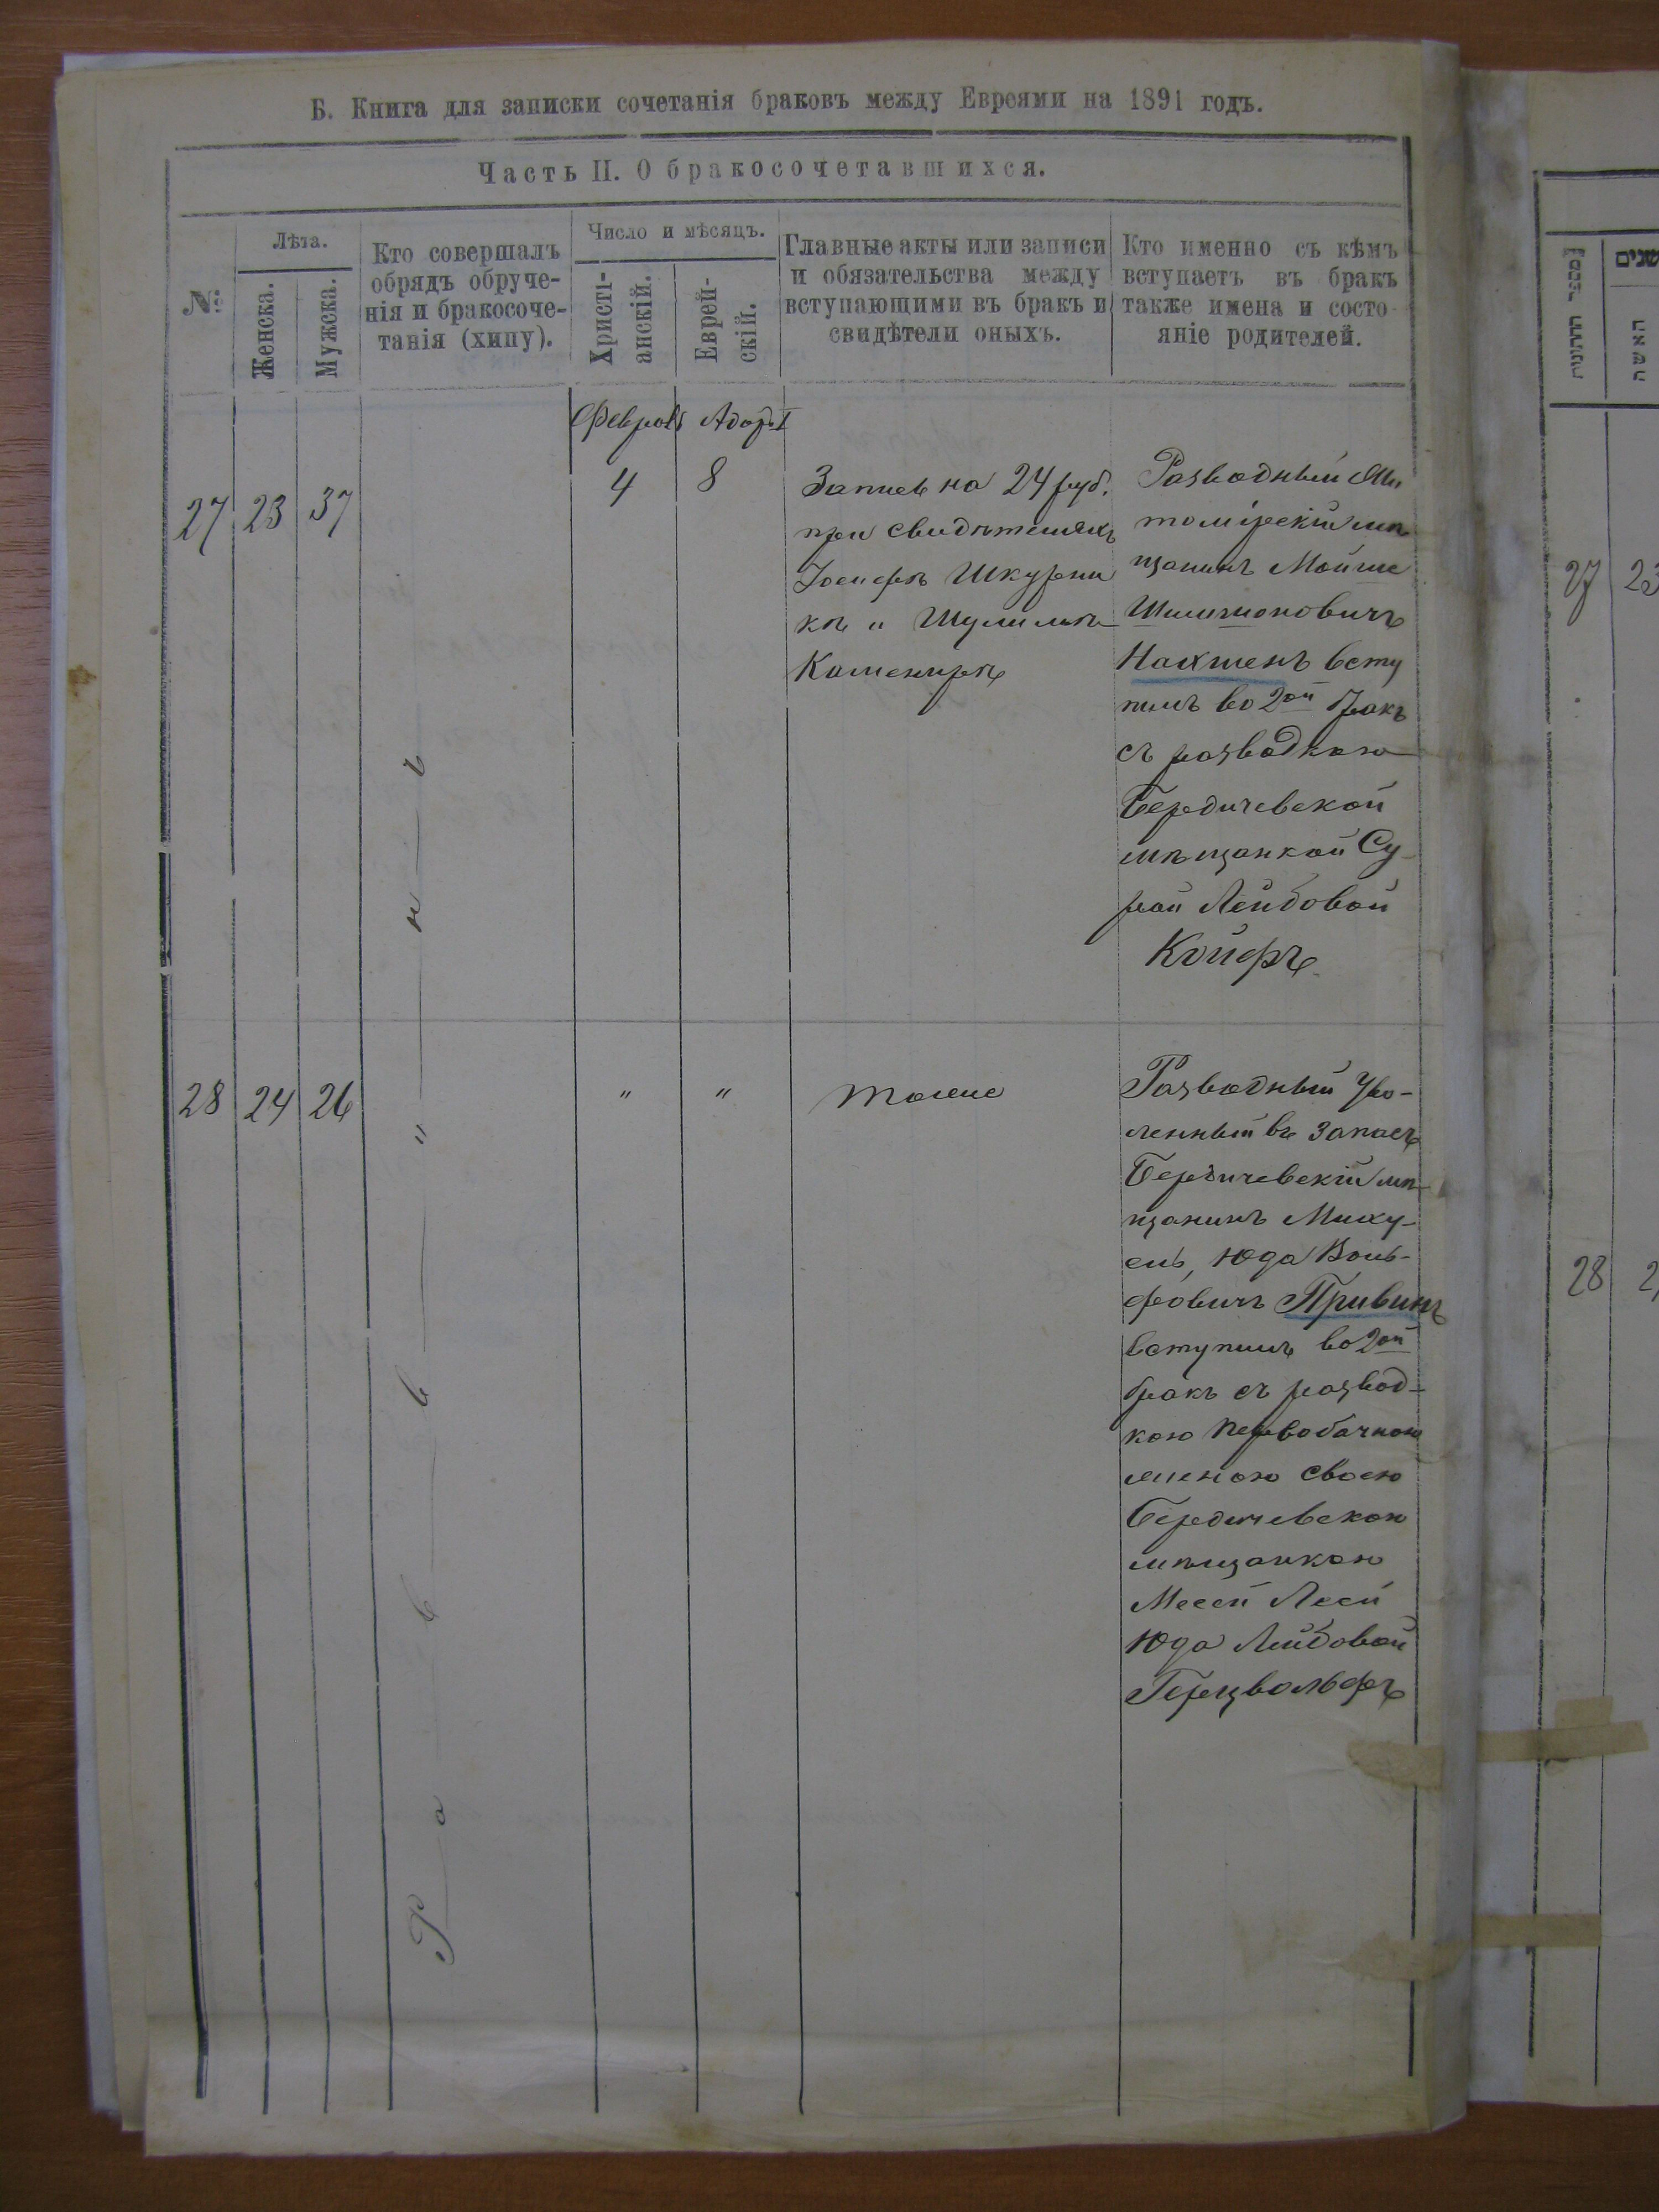 Б. Книга для записки сочетанія браковъ между Евреями на 1891 годъ.
Часть II. О бракосочетавшихся.
№
Лѣта.
Женска.
Мужска.
Кто совершалъ
обрядъ обруче-
нія и бракосоче-
танія (хипу).
Число и мѣсяцъ.
Христі-
анскій.
Еврей-
скій.
Главные акты или записи
и обязательства между
вступающими въ бракъ и
свидѣтели оныхъ.
Кто именно съ кѣмъ
вступаетъ въ бракъ
также имена и состо-
яніе родителей.
Февраль Адаръ I
27 23 37
4 8
Запись на 24 руб.
при свидѣтеляхъ
Іосифъ Шкурни
къ и Шулимъ
Камениръ
Разводный Жи
томірскій мѣ
щанинъ Мойше
Шлимоновичъ
Нахтенъ всту
пилъ во 2ой бракъ
съ разводкою
Бердичевской
мѣщанкой Су
рой Лейбовой
Койфъ
28 24 26
" "
тоже
Разводный Уво-
ленный въ запасъ
Бердичевскій мѣ-
щанинъ Миху-
ель, Юда Воль-
фовичъ Привинъ
вступилъ во 2ой
бракъ съ развод-
кою первобачною
женою своею
Бердичевскою
мѣщанкою
Месей Лееи
Юда Лейбовой
Герцвольфъ
Раввинъ
מספר החתונות
שנים
האשה
27 23
28 2